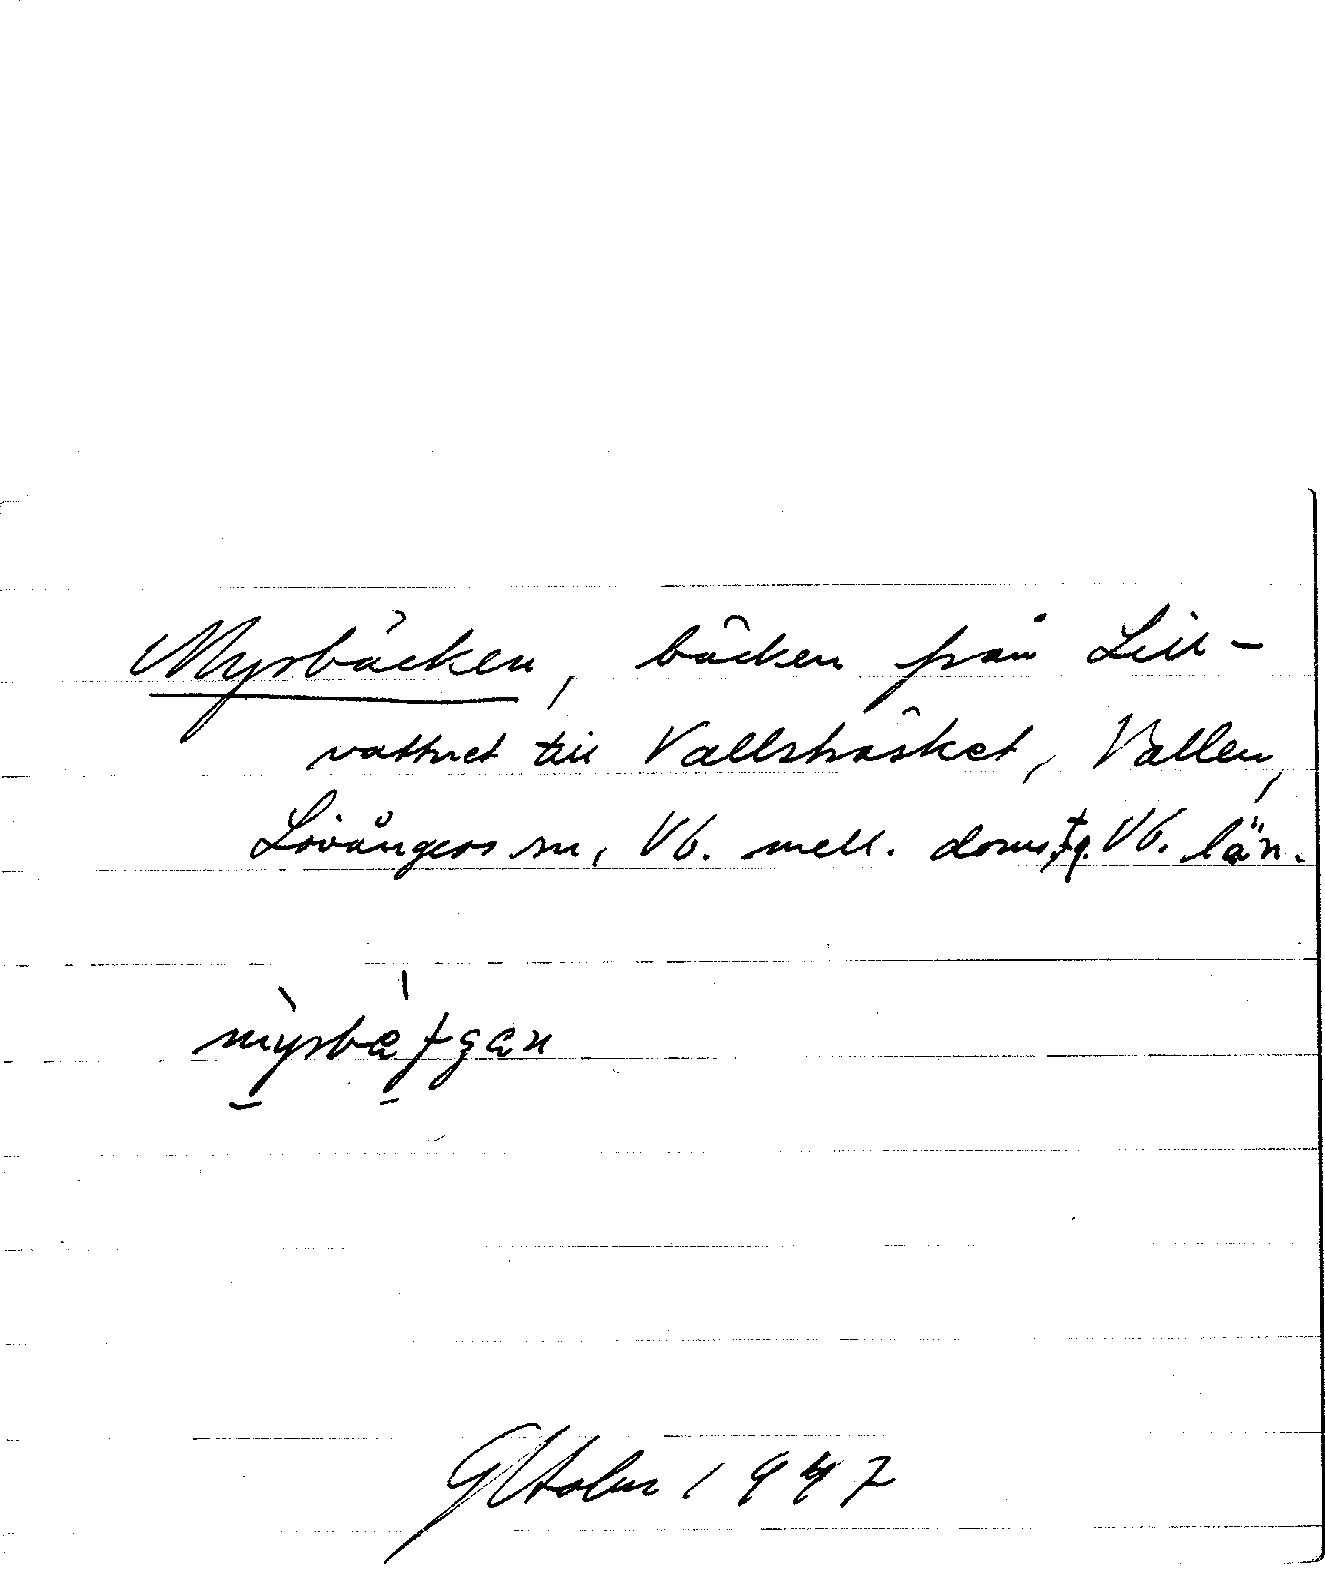 Myrbäcken, bäcken från Lill-
vattnet till Vallsträsket, Vallen,
Lövångers sn, Vb. mell. doms,tg. Vb. län.
1947